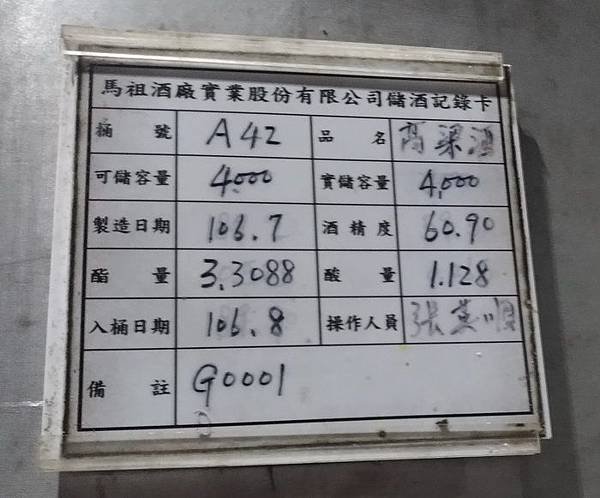 馬祖酒廠實業股份有限公司儲酒記錄卡
桶號 A42 品名 高梁酒
可儲容量 4000 實儲容量 4,000
製造日期 106.7 酒精度 60.90
酯量 3.3088 酸量 1.128
入桶日期 106.8 操作人員 張
備註 G0001